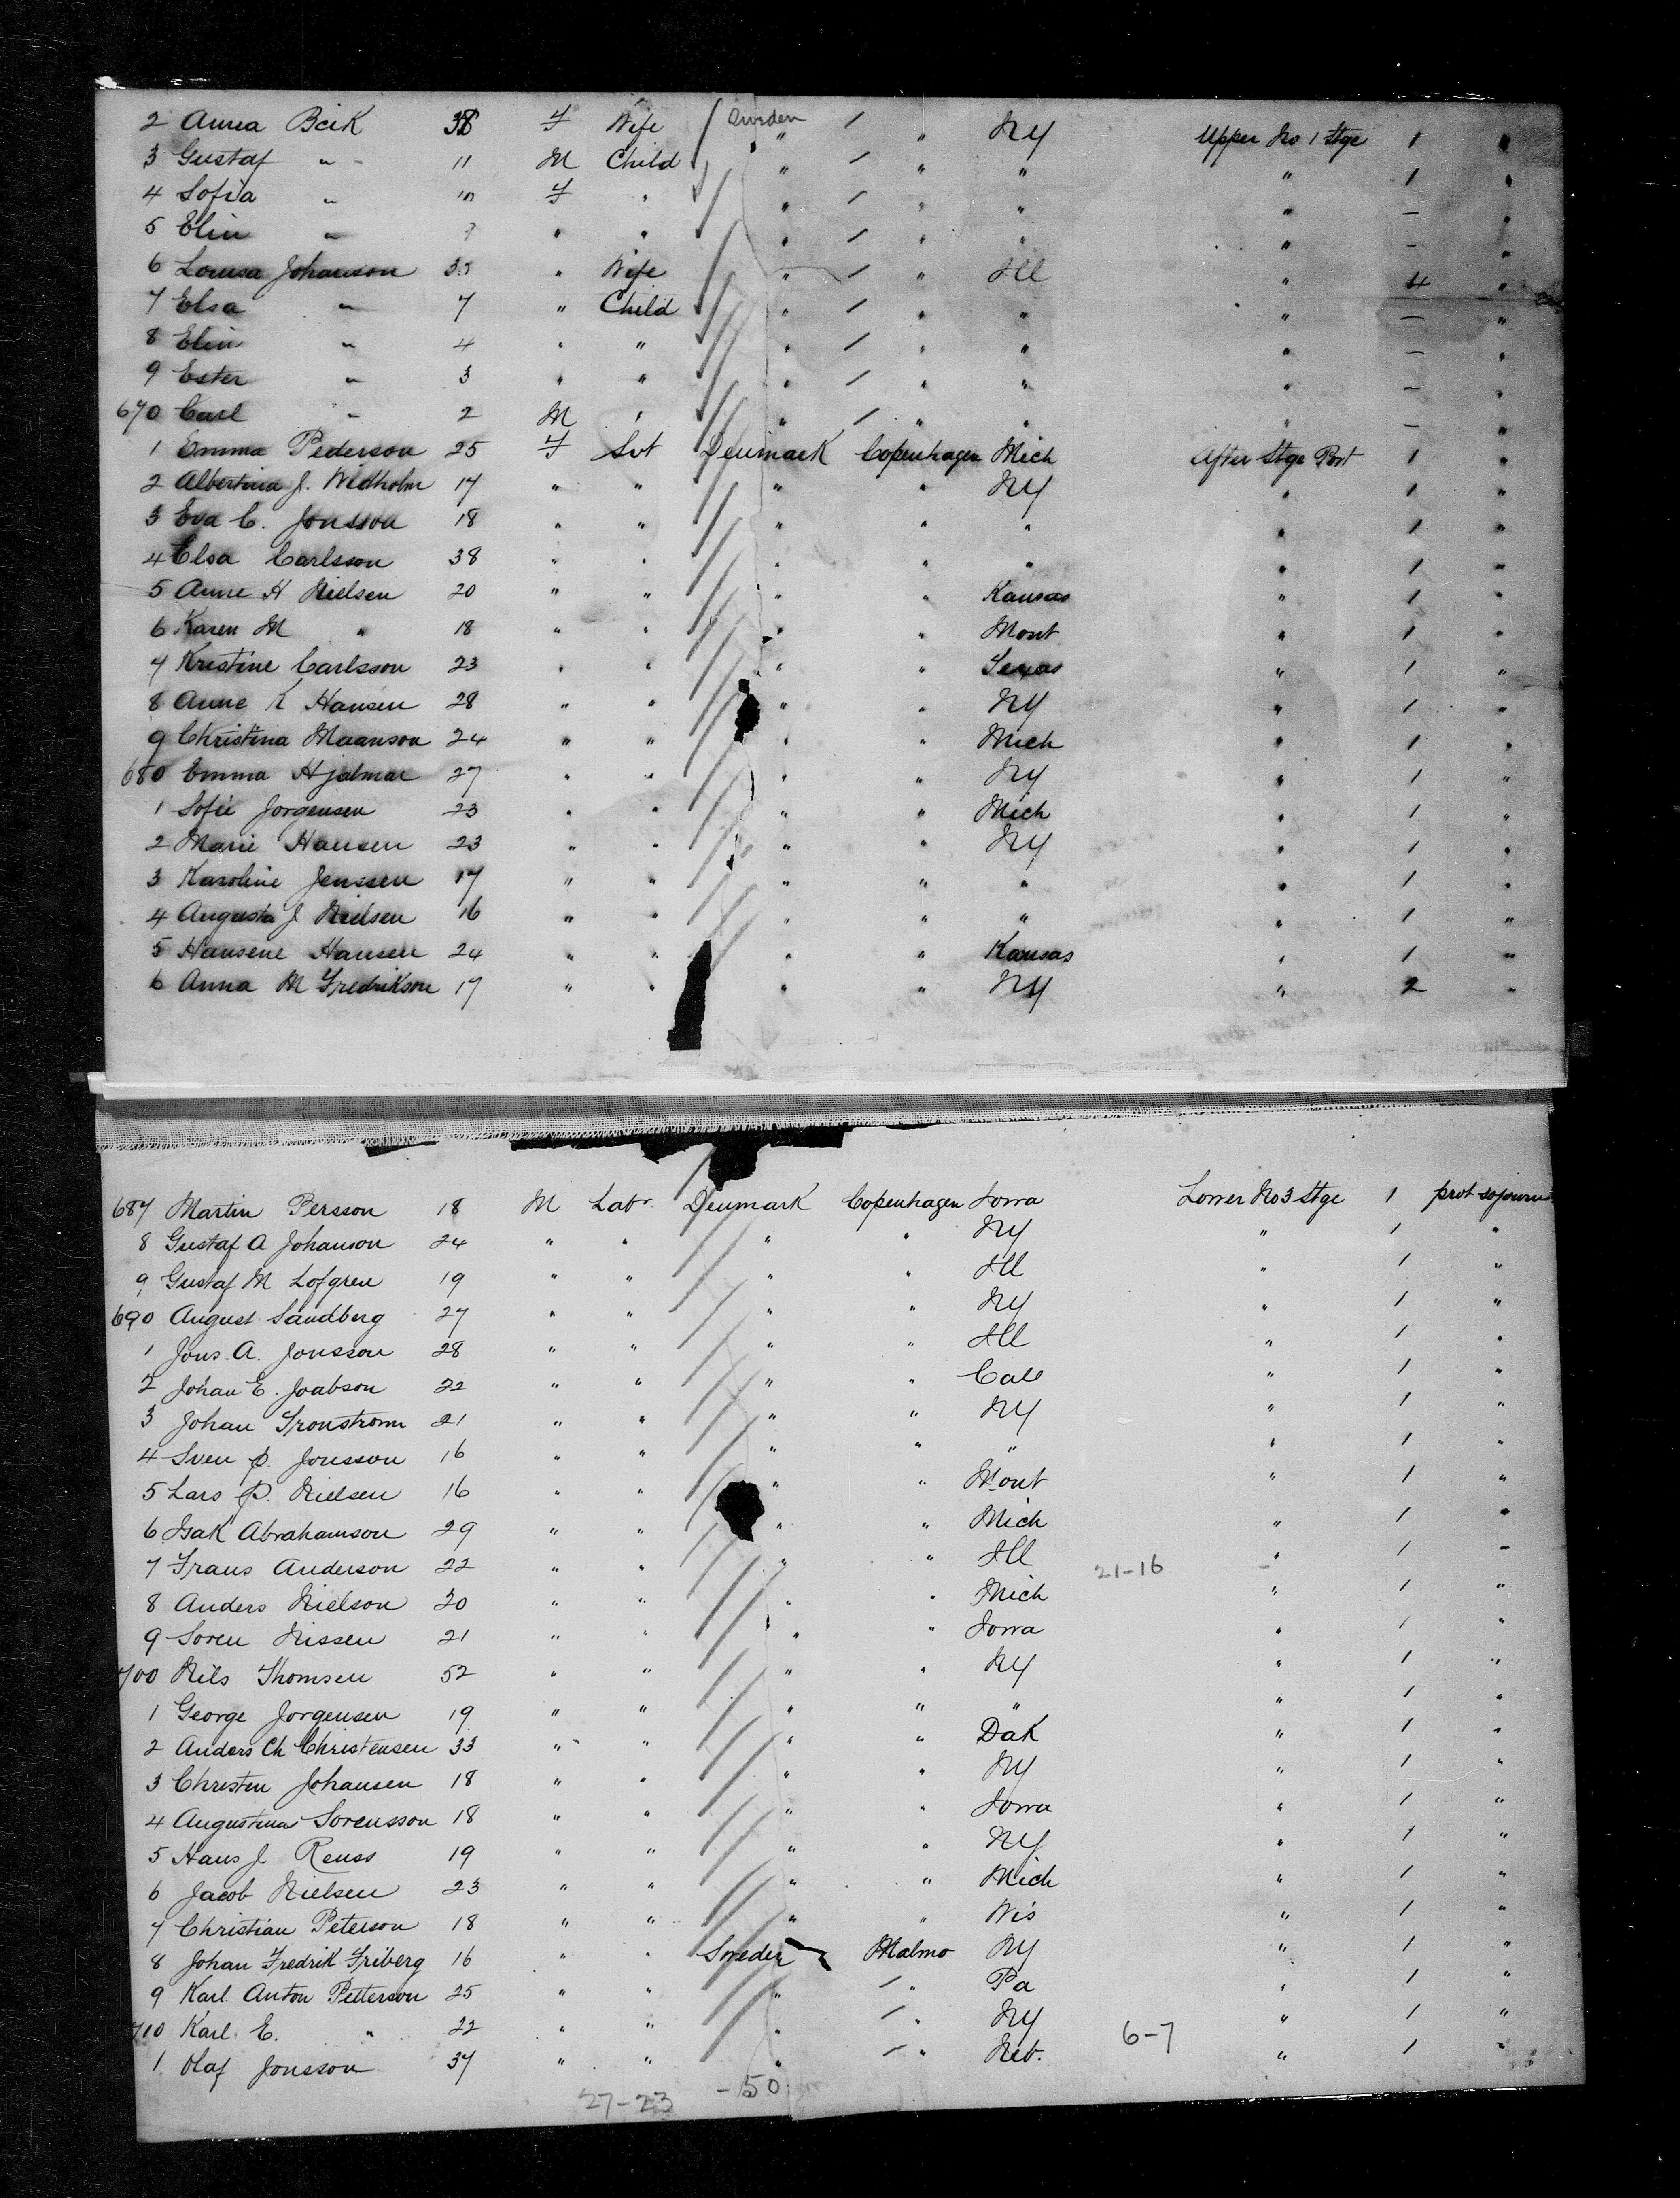 2 Anna Beik 38 F Wife Sweden " / " NY Upper No 1 Stge 1 "
3 Gustaf " 11 M Child " / " " " 1 "
4 Sofia " 10 F " " / " " " — "
5 Elin " " " " / " " " — "
6 Lousa Johanson 35 " Wife " / " Ill " 4 "
7 Elsa " 7 " Child " / " " " — "
8 Elin " 4 " " " / " " " — "
9 Ester " 3 " " " / " " " — "
670 Carl " 2 M " " / " " " — "
1 Emma Pederson 25 F Svt Denmark Copenhagen Mich After Stge Port 1 "
2 Albertina J. Widholm 17 " " " " NY " 1 "
3 Eva C. Jonsson 18 " " " " " " 1 "
4 Elsa Carlsson 38 " " " " " " 1 "
5 Anne H Nielsen 20 " " " " Kansas " 1 "
6 Karen M " 18 " " " " Mont " 1 "
7 Kristine Carlsson 23 " " " " Texas " 1 "
8 Anne K Hansen 28 " " " " NY " 1 "
9 Christina Maanson 24 " " " " Mich " 1 "
680 Emma Hjalmar 27 " " " " NY " 1 "
1 Sofie Jorgensen 23 " " " " Mich " 1 "
2 Marie Hansen 23 " " " " NY " 1 "
3 Karoline Jenssen 17 " " " " " " 1 "
4 Augusta J Nielsen 16 " " " " " " 1 "
5 Hansene Hansen 24 " " " " Kansas " 1 "
6 Anna M Fredrikson 17 " " " " NY " 2 "
687 Martin Persson 18 M Labr Denmark Copenhagen Iowa Lower No 3 Stge 1 prot sojourn
8 Gustaf A Johanson 24 " " " " NY " 1 "
9 Gustaf M Lofgren 19 " " " " Ill " 1 "
690 August Sandberg 27 " " " " NY " 1 "
1 Jons. A. Jonsson 28 " " " " Ill " 1 "
2 Johan E. Joabson 22 " " " " Call " 1 "
3 Johan Tronstrom 21 " " " " NY " 1 "
4 Sven P. Jonsson 16 " " " " " " 1 "
5 Lars P. Nielsen 16 " " " " Mont " 1 "
6 Isak Abrahamson 29 " " " " Mich " 1 "
7 Frans Anderson 22 " " " " Ill 21-16 " 1 "
8 Anders Nielson 20 " " " " Mich " 1 "
9 Soren Nissen 21 " " " " Iowa " 1 "
700 Nils Thomsen 52 " " " " NY " 1 "
1 George Jorgensen 19 " " " " " " 1 "
2 Anders Ch Christensen 33 " " " " Dak " 1 "
3 Christen Johansen 18 " " " " NY " 1 "
4 Augustina Sorensson 18 " " " " Iowa " 1 "
5 Hans J Reuss 19 " " " " NY " 1 "
6 Jacob Nielsen 23 " " " " Mich " 1 "
7 Christian Peterson 18 " " " " Wis " 1 "
8 Johan Fredrik Friberg 16 " " Sweden Malmo NY " 1 "
9 Karl Anton Petterson 25 " " " / " Pa " 1 "
710 Karl E. " 22 " " " / " NY " 1 "
1 Olaf Jonsson 37 " " " / " Neb. 6-7 " 1 "
27-23 -50